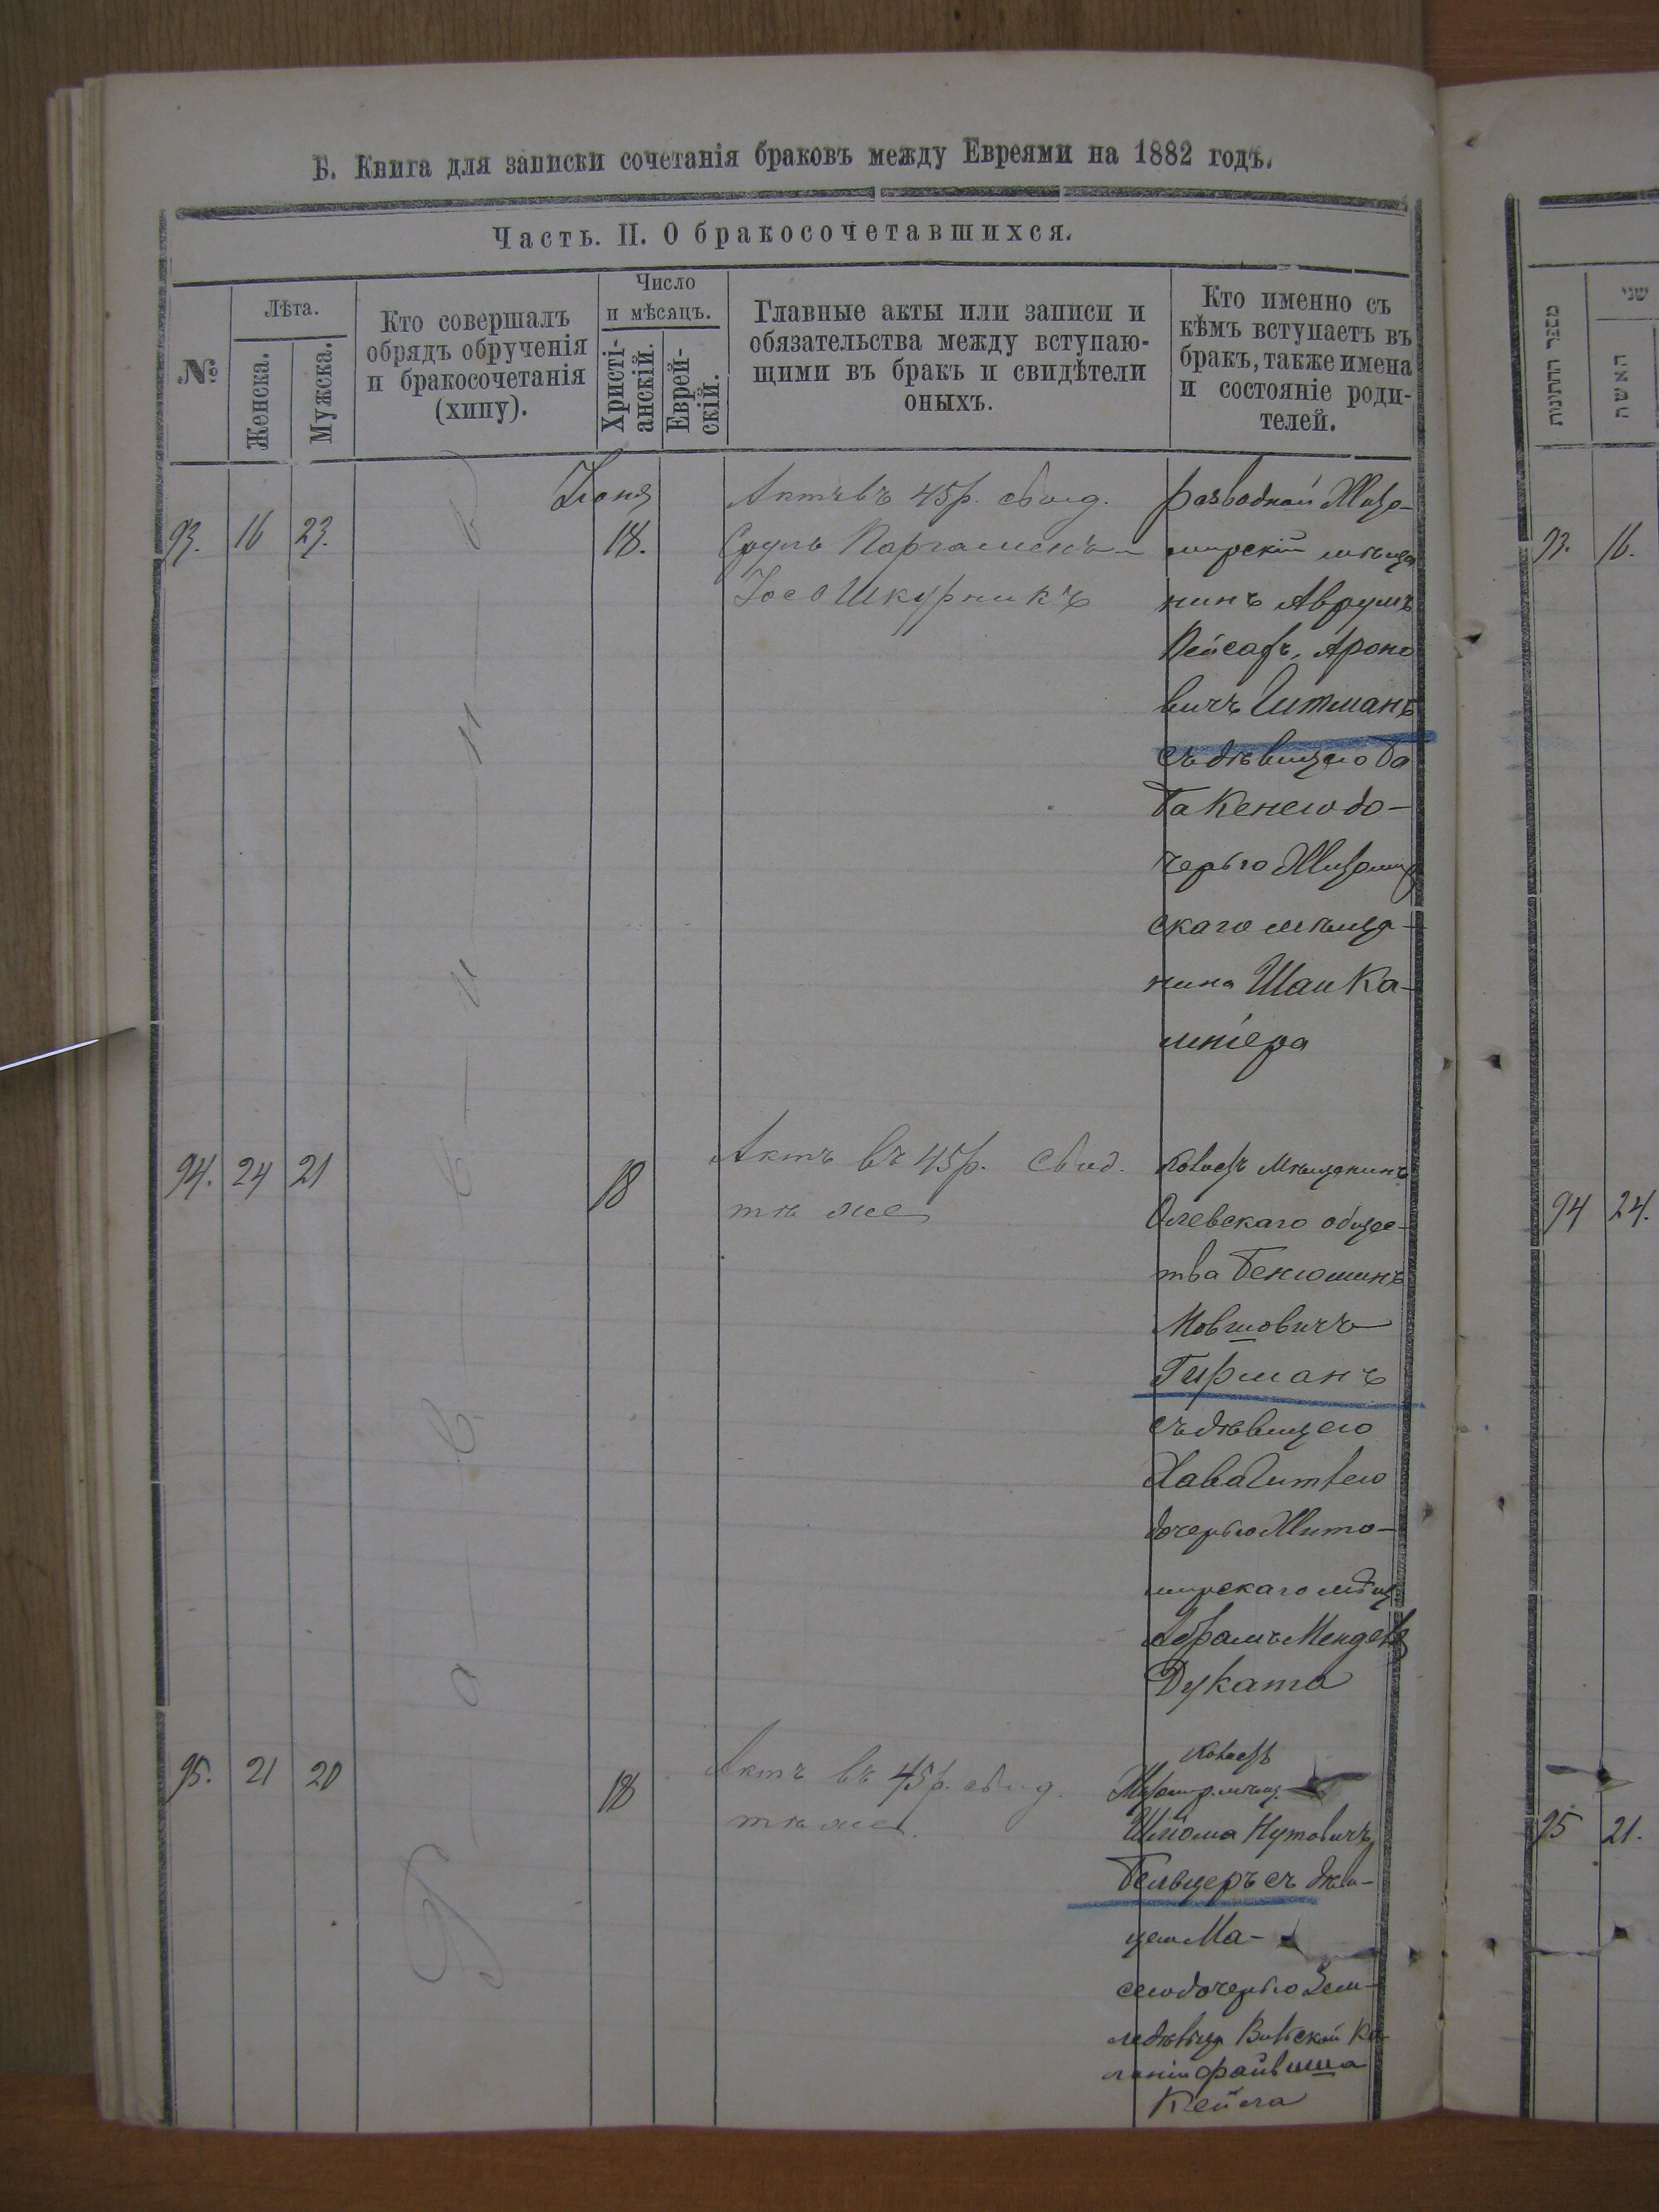 Б. Книга для записки сочетанія браковъ между Евреями на 1882 годъ.
Часть. II. О бракосочетавшихся.
№
Лѣта.
Женска.
Мужска.
Кто совершалъ
обрядъ обрученія
и бракосочетанія
(хипу).
Число
и мѣсяцъ.
Христі-
анскій.
Еврей-
скій.
Главные акты или записи и
обязательства между вступаю-
щими въ бракъ и свидѣтели
оныхъ.
Кто именно съ
кѣмъ вступаетъ въ
бракъ, также имена
и состояніе роди-
телей.
93. 16 23.
Іюня
18.
Актъ въ 45 р. свид.
Сруль Паргаменъ
Іось Шкурникъ
разводной Жито-
мирскій мѣща
нинъ Аврумъ
Пейсахъ, Ароно
вичъ Гитманъ
съ дѣвицею Ба
ба Кенею до-
черью Житомир
скаго мѣща-
нина Шаи Ка-
94. 24 21
18
Актъ въ 45 р. Свид.
тѣ же
Холост мѣщанинъ
Олевскаго общес-
тва Бенюминъ
Мовшовичъ
Гирманъ
съ дѣвицею
Хава Гитлею
дочерью Жито-
мирскаго мѣщ
Абрамъ Мендель
Духата
95. 21 20
18
Актъ въ 45 р. свид.
тѣ же
Холост
Житомир. мѣщ.
Шлёма Нутовичъ
Бельцеръ съ дѣви-
цею Ма-
сею дочерью Зем-
ледѣльца Вильской Ко-
лоніи Файвиша
Кейса
מספר החתונות
שני
האשה
93. 16.
94 24.
95 21.